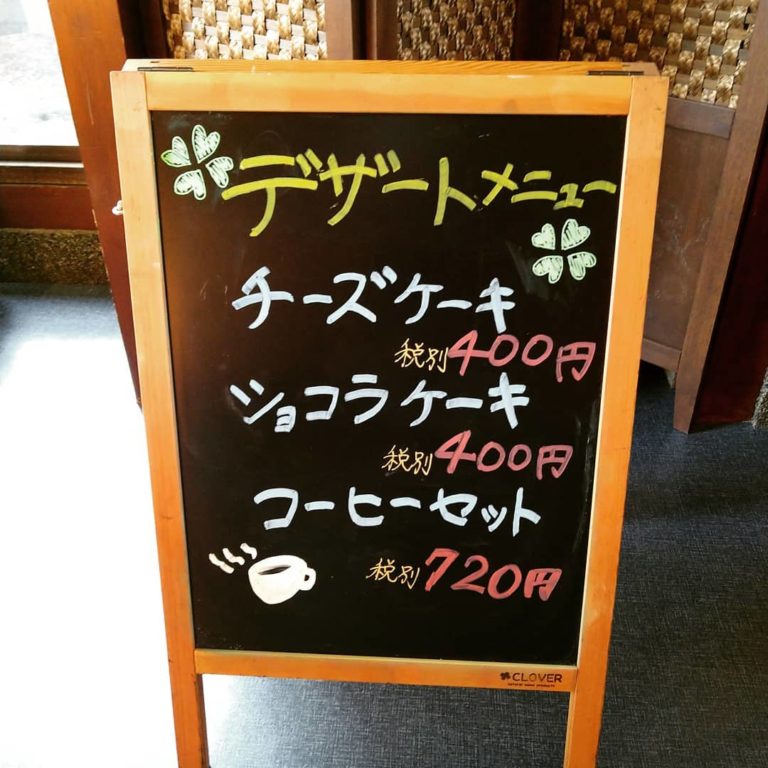 デザートメニュー
チーズケーキ
税別400円
ショコラケーキ
税別400円
コーヒーセット
税別720円
CLOVER